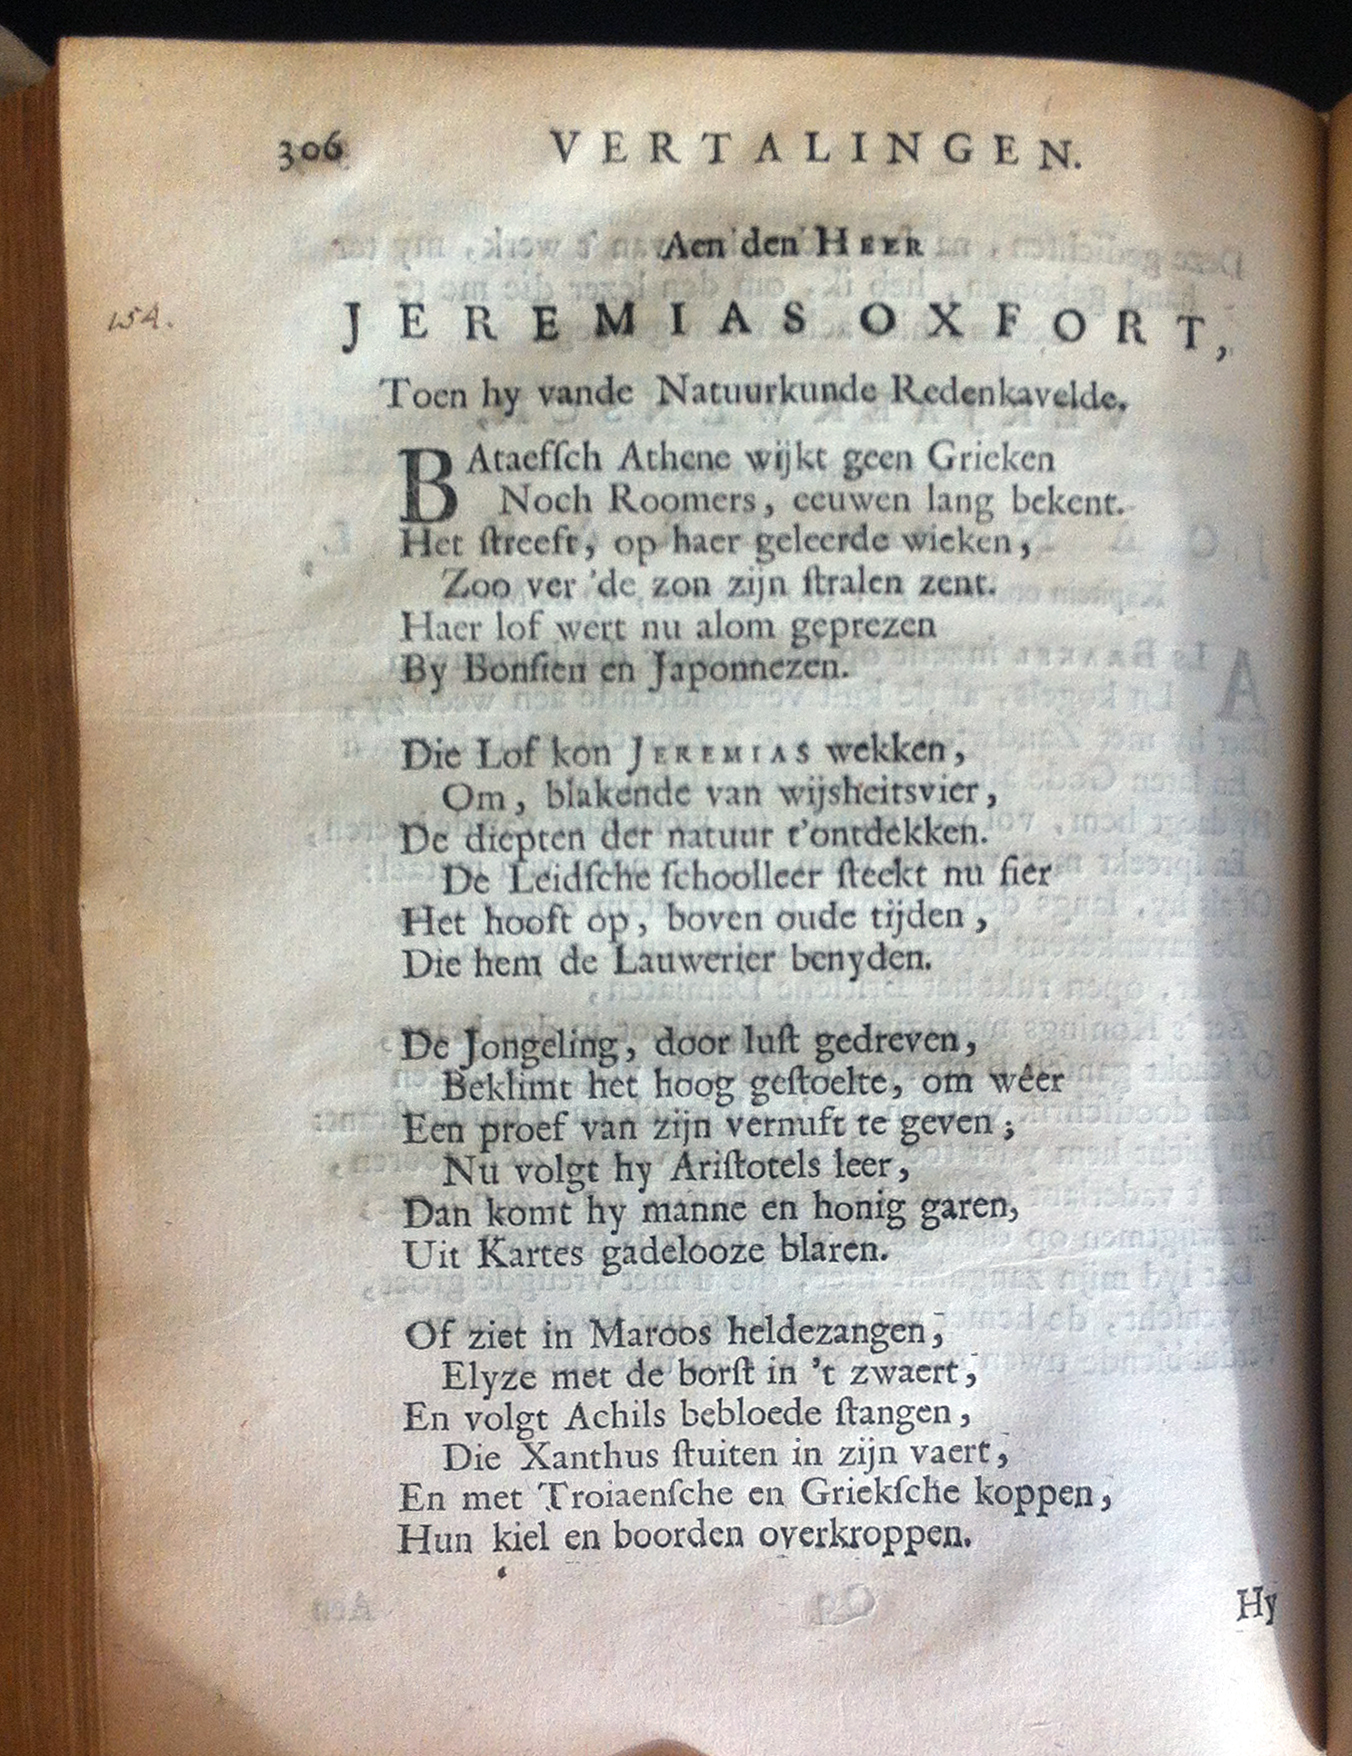 306 VERTALINGEN.
Aen den HEER
154.
JEREMIAS OXFORT,
Toen hy vande Natuurkunde Redenkavelde.
BAtaefſch Athene wijkt geen Grieken
Noch Roomers, eeuwen lang bekent.
Het ſtreeft, op haer geleerde wieken,
Zoo ver 'de zon zijn ſtralen zent.
Haer lof wert nu alom geprezen
By Bonſien en Japonnezen.
Die Lof kon JEREMIAS wekken,
Om, blakende van wijsheitsvier,
De diepten der natuur t'ontdekken.
De Leidſche ſchoolleer ſteekt nu fier
Het hooft op, boven oude tijden,
Die hem de Lauwerier benyden.
De Jongeling, door luſt gedreven,
Beklimt het hoog geſtoelte, om wéer
Een proef van zijn vernuft te geven;
Nu volgt hy Ariſtotels leer,
Dan komt hy manne en honig garen,
Uit Kartes gadelooze blaren.
Of ziet in Maroos heldezangen,
Elyze met de borſt in 't zwaert,
En volgt Achils bebloede ſtangen,
Die Xanthus ſtuiten in zijn vaert,
En met Troiaenſche en Griekſche koppen,
Hun kiel en boorden overkroppen.
Hy